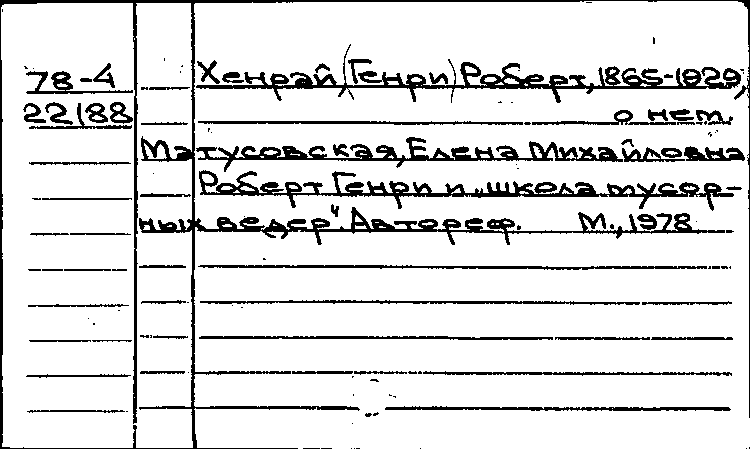 78-4 Хенрай, (Генри) Роберт, 1865-1929,
22188 о нем.
Матусовская, Елена Михайловна
Роберт Генри и „школа мусор-
ных ведер". Автореф. М., 1978